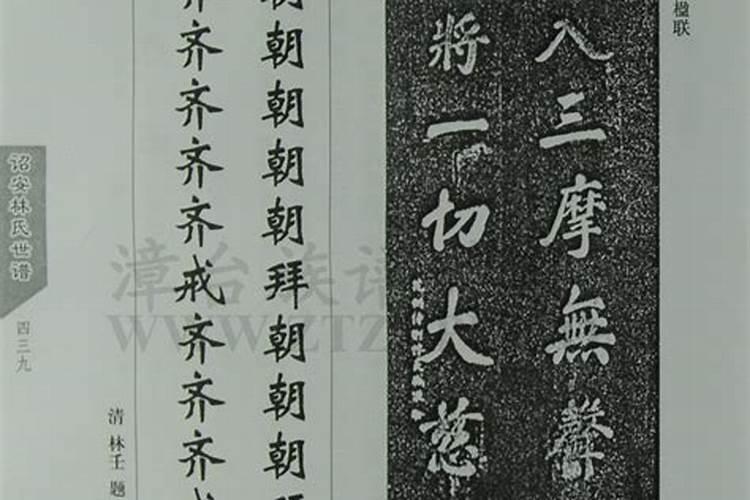 楹联
入三摩無聲
將一切大慈
朝朝朝朝拜朝朝朝
齐齐齐齐齐戒齐齐齐
清 林壬 题
诏安林氏世谱
四三九
漳台族谱
WWW.ZTZ